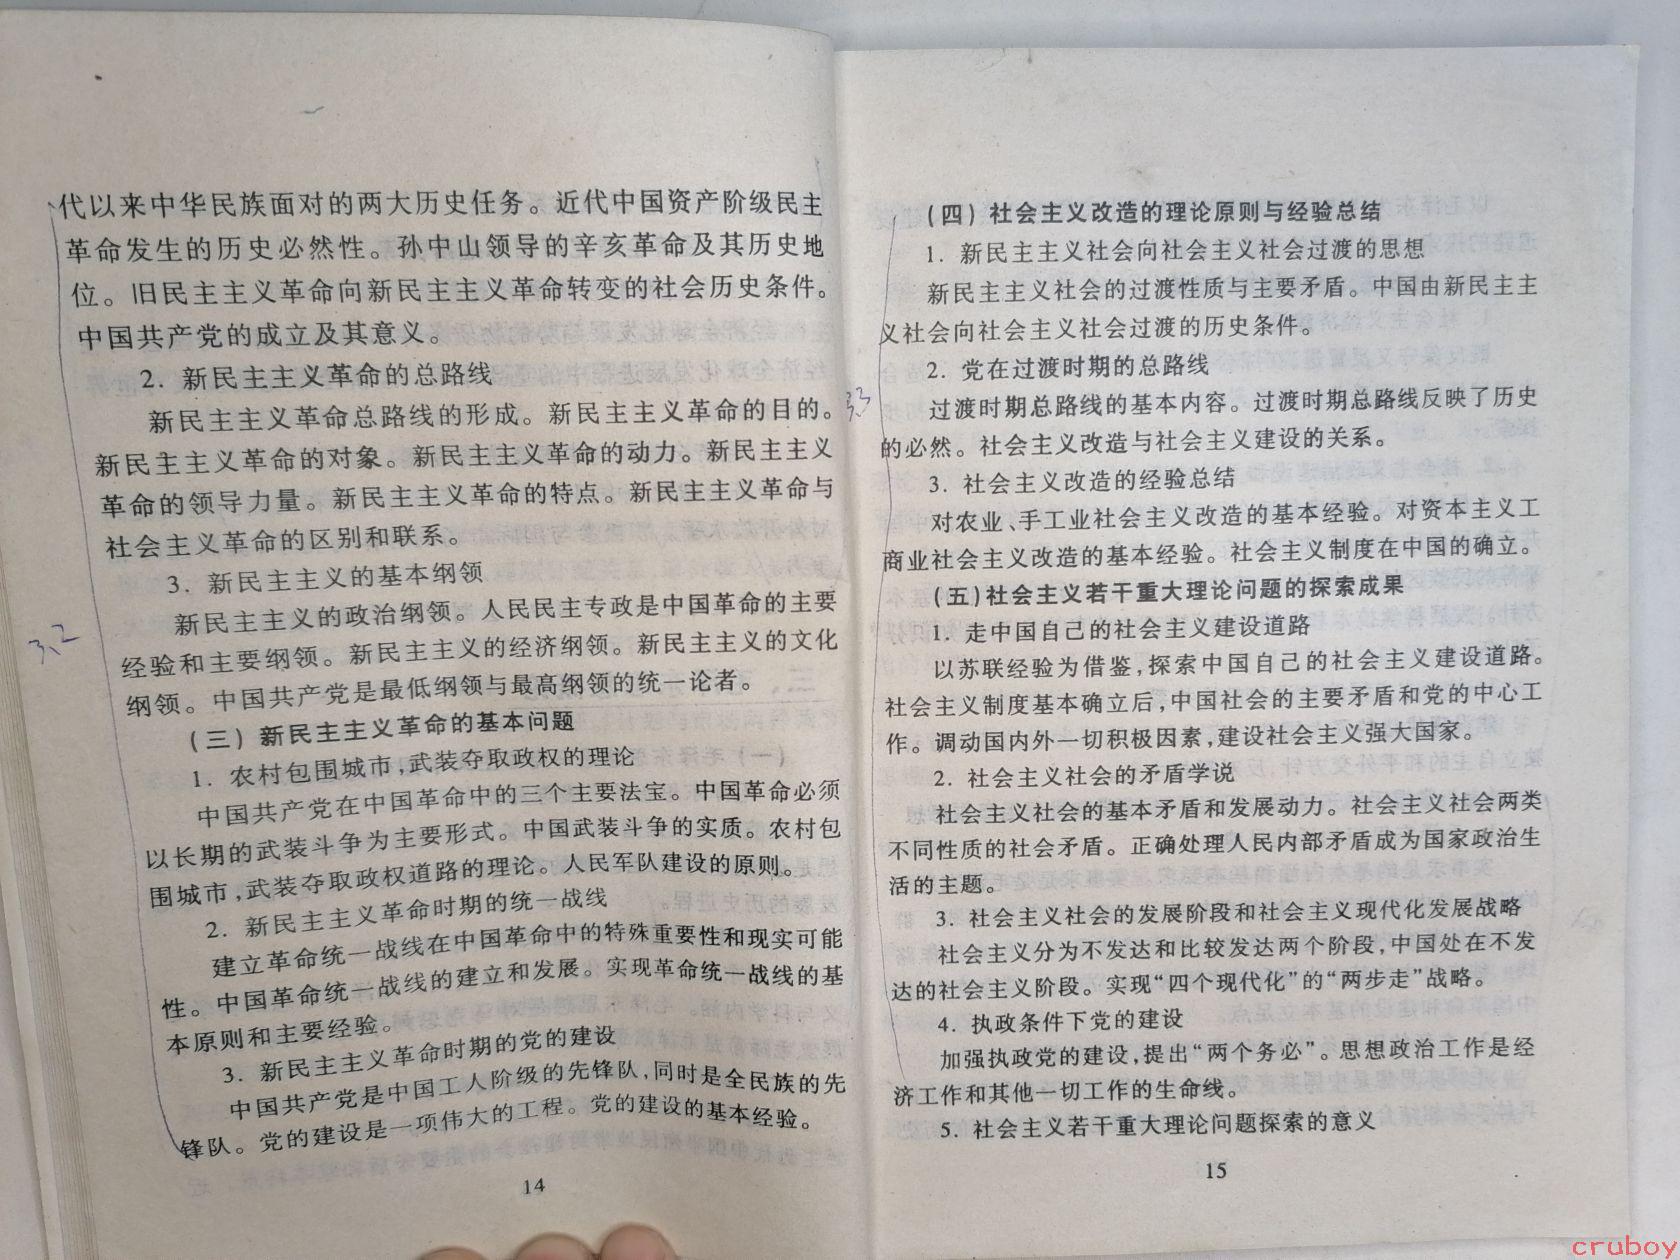 代以来中华民族面对的两大历史任务。近代中国资产阶级民主
革命发生的历史必然性。孙中山领导的辛亥革命及其历史地
位。旧民主主义革命向新民主主义革命转变的社会历史条件。
中国共产党的成立及其意义。
2. 新民主主义革命的总路线
新民主主义革命总路线的形成。新民主主义革命的目的。
新民主主义革命的对象。新民主主义革命的动力。新民主主义
革命的领导力量。新民主主义革命的特点。新民主主义革命与
社会主义革命的区别和联系。
3. 新民主主义的基本纲领
新民主主义的政治纲领。人民民主专政是中国革命的主要
经验和主要纲领。新民主主义的经济纲领。新民主主义的文化
纲领。中国共产党是最低纲领与最高纲领的统一论者。
3.2
(三) 新民主主义革命的基本问题
1. 农村包围城市,武装夺取政权的理论
中国共产党在中国革命中的三个主要法宝。中国革命必须
以长期的武装斗争为主要形式。中国武装斗争的实质。农村包
围城市,武装夺取政权道路的理论。人民军队建设的原则。
2. 新民主主义革命时期的统一战线
建立革命统一战线在中国革命中的特殊重要性和现实可能
性。中国革命统一战线的建立和发展。实现革命统一战线的基
本原则和主要经验。
3. 新民主主义革命时期的党的建设
中国共产党是中国工人阶级的先锋队,同时是全民族的先
锋队。党的建设是一项伟大的工程。党的建设的基本经验。
14
(四) 社会主义改造的理论原则与经验总结
1. 新民主主义社会向社会主义社会过渡的思想
新民主主义社会的过渡性质与主要矛盾。中国由新民主主
义社会向社会主义社会过渡的历史条件。
2. 党在过渡时期的总路线
3.3
过渡时期总路线的基本内容。过渡时期总路线反映了历史
的必然。社会主义改造与社会主义建设的关系。
3. 社会主义改造的经验总结
对农业、手工业社会主义改造的基本经验。对资本主义工
商业社会主义改造的基本经验。社会主义制度在中国的确立。
(五)社会主义若干重大理论问题的探索成果
1. 走中国自己的社会主义建设道路
以苏联经验为借鉴,探索中国自己的社会主义建设道路。
社会主义制度基本确立后,中国社会的主要矛盾和党的中心工
作。调动国内外一切积极因素,建设社会主义强大国家。
2. 社会主义社会的矛盾学说
社会主义社会的基本矛盾和发展动力。社会主义社会两类
不同性质的社会矛盾。正确处理人民内部矛盾成为国家政治生
活的主题。
3. 社会主义社会的发展阶段和社会主义现代化发展战略
社会主义分为不发达和比较发达两个阶段,中国处在不发
达的社会主义阶段。实现“四个现代化”的“两步走”战略。
4. 执政条件下党的建设
加强执政党的建设,提出“两个务必”。思想政治工作是经
济工作和其他一切工作的生命线。
5. 社会主义若干重大理论问题探索的意义
15
cruboy